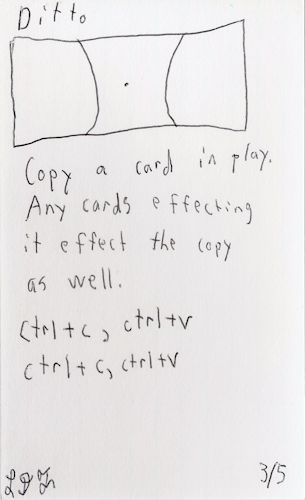 Ditto
Copy a card in play.
Any cards effecting
it effect the copy
as well.
ctrl+c, ctrl+v
ctrl+c, ctrl+v
3/5